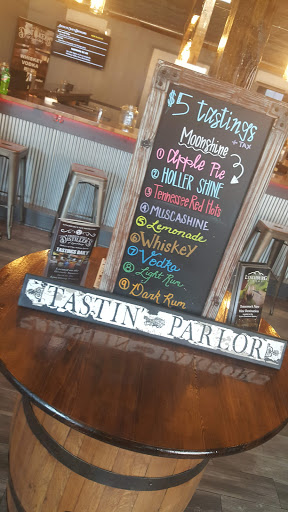 $5 tastings
+ TAX
Moonshine
① Apple Pie
② HOLLER SHINE
③ Tennessee Red Hots
④ MUSCASHINE
⑤ Lemonade
⑥ Whiskey
⑦ Vodka
⑧ Light Rum
⑨ Dark Rum
TASTINGS DAILY
TASTIN' PARLOR
WHISKEY
VODKA